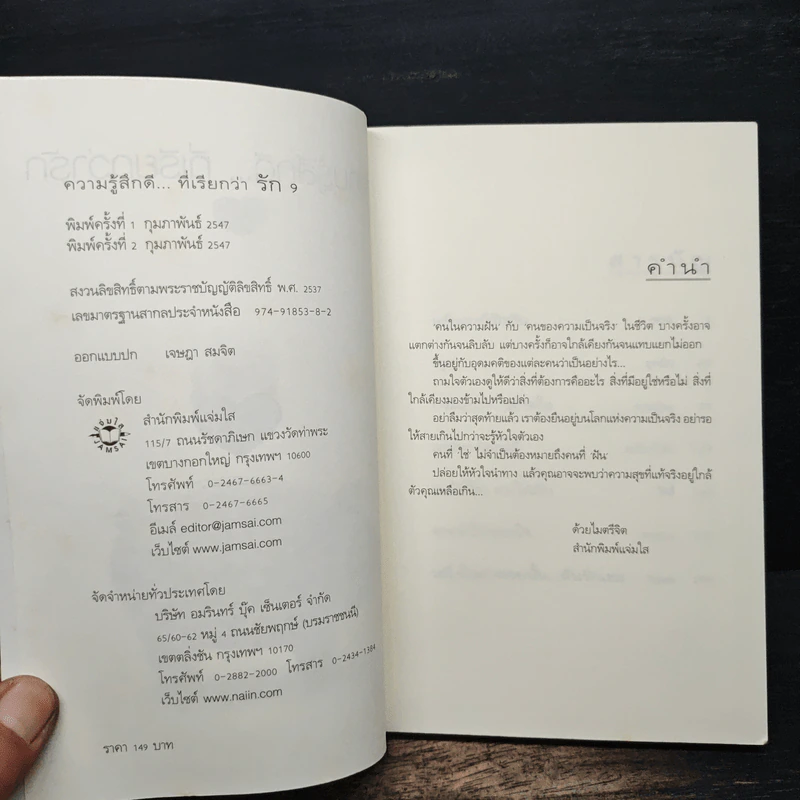 ความรู้สึกดี... ที่เรียกว่า รัก 9
พิมพ์ครั้งที่ 1 กุมภาพันธ์ 2547
พิมพ์ครั้งที่ 2 กุมภาพันธ์ 2547
สงวนลิขสิทธิ์ตามพระราชบัญญัติลิขสิทธิ์ พ.ศ. 2537
เลขมาตรฐานสากลประจำหนังสือ 974-91853-8-2
ออกแบบปก เจษฎา สมจิต
จัดพิมพ์โดย
สำนักพิมพ์แจ่มใส
115/7 ถนนรัชดาภิเษก แขวงวัดท่าพระ
เขตบางกอกใหญ่ กรุงเทพฯ 10600
โทรศัพท์ 0-2467-6663-4
โทรสาร 0-2467-6665
อีเมล์ editor@jamsai.com
เว็บไซต์ www.jamsai.com
จัดจำหน่ายทั่วประเทศโดย
บริษัท อมรินทร์ บุ๊ค เซ็นเตอร์ จำกัด
65/60-62 หมู่ 4 ถนนชัยพฤกษ์ (บรมราชชนนี)
เขตตลิ่งชัน กรุงเทพฯ 10170
โทรศัพท์ 0-2882-2000 โทรสาร 0-2434-1384
เว็บไซต์ www.naiin.com
ราคา 149 บาท
คำนำ
'คนในความฝัน' กับ 'คนของความเป็นจริง' ในชีวิต บางครั้งอาจ
แตกต่างกันจนลิบลับ แต่บางครั้งก็อาจใกล้เคียงกันจนแทบแยกไม่ออก
ขึ้นอยู่กับอุดมคติของแต่ละคนว่าเป็นอย่างไร...
ถามใจตัวเองดูให้ดีว่าสิ่งที่ต้องการคืออะไร สิ่งที่มีอยู่ใช่หรือไม่ สิ่งที่
ใกล้เคียงมองข้ามไปหรือเปล่า
อย่าลืมว่าสุดท้ายแล้ว เราต้องยืนอยู่บนโลกแห่งความเป็นจริง อย่ารอ
ให้สายเกินไปกว่าจะรู้หัวใจตัวเอง
คนที่ 'ใช่' ไม่จำเป็นต้องหมายถึงคนที่ 'ฝัน'
ปล่อยให้หัวใจนำทาง แล้วคุณอาจจะพบว่าความสุขที่แท้จริงอยู่ใกล้
ตัวคุณเหลือเกิน...
ด้วยไมตรีจิต
สำนักพิมพ์แจ่มใส